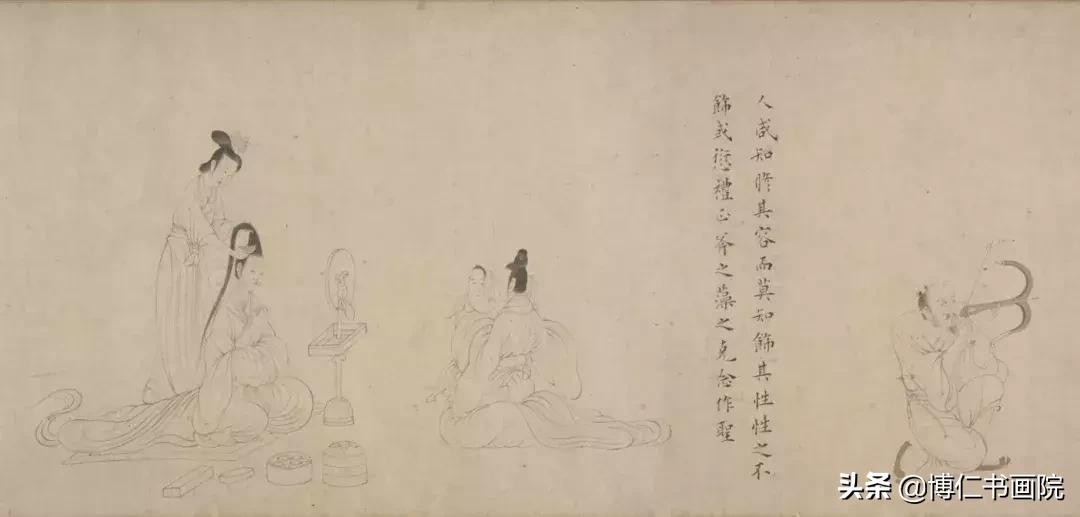 人咸知脩其容而莫知飾其性性之不
飾或愆禮正斧之藻之克念作聖
头条 @博仁书画院